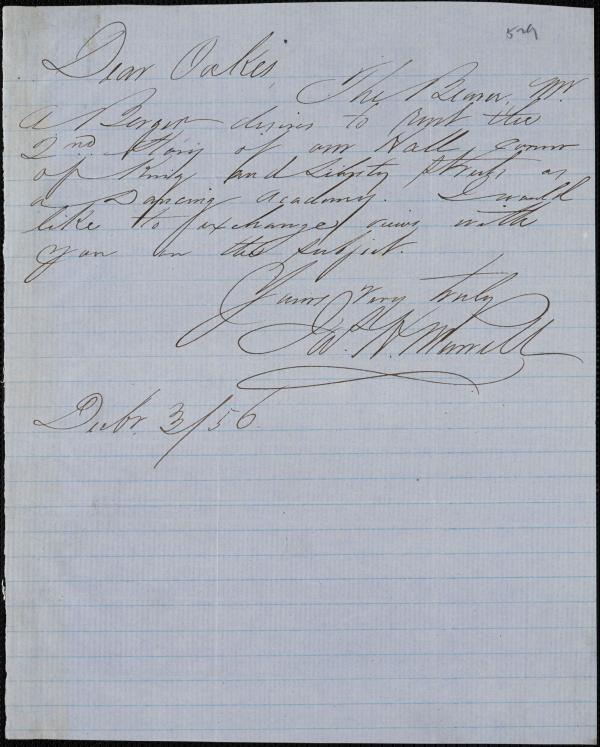 529
Dear Oakes,
The Bearer, Mr.
A Berger desires to rent the
2nd Story of our Hall, corner
of King and Liberty Streets as
a Dancing Academy. I would
like to exchange views with
you on the subject.
Yours very truly
Jas. H. Murrell
Decbr. 3/56